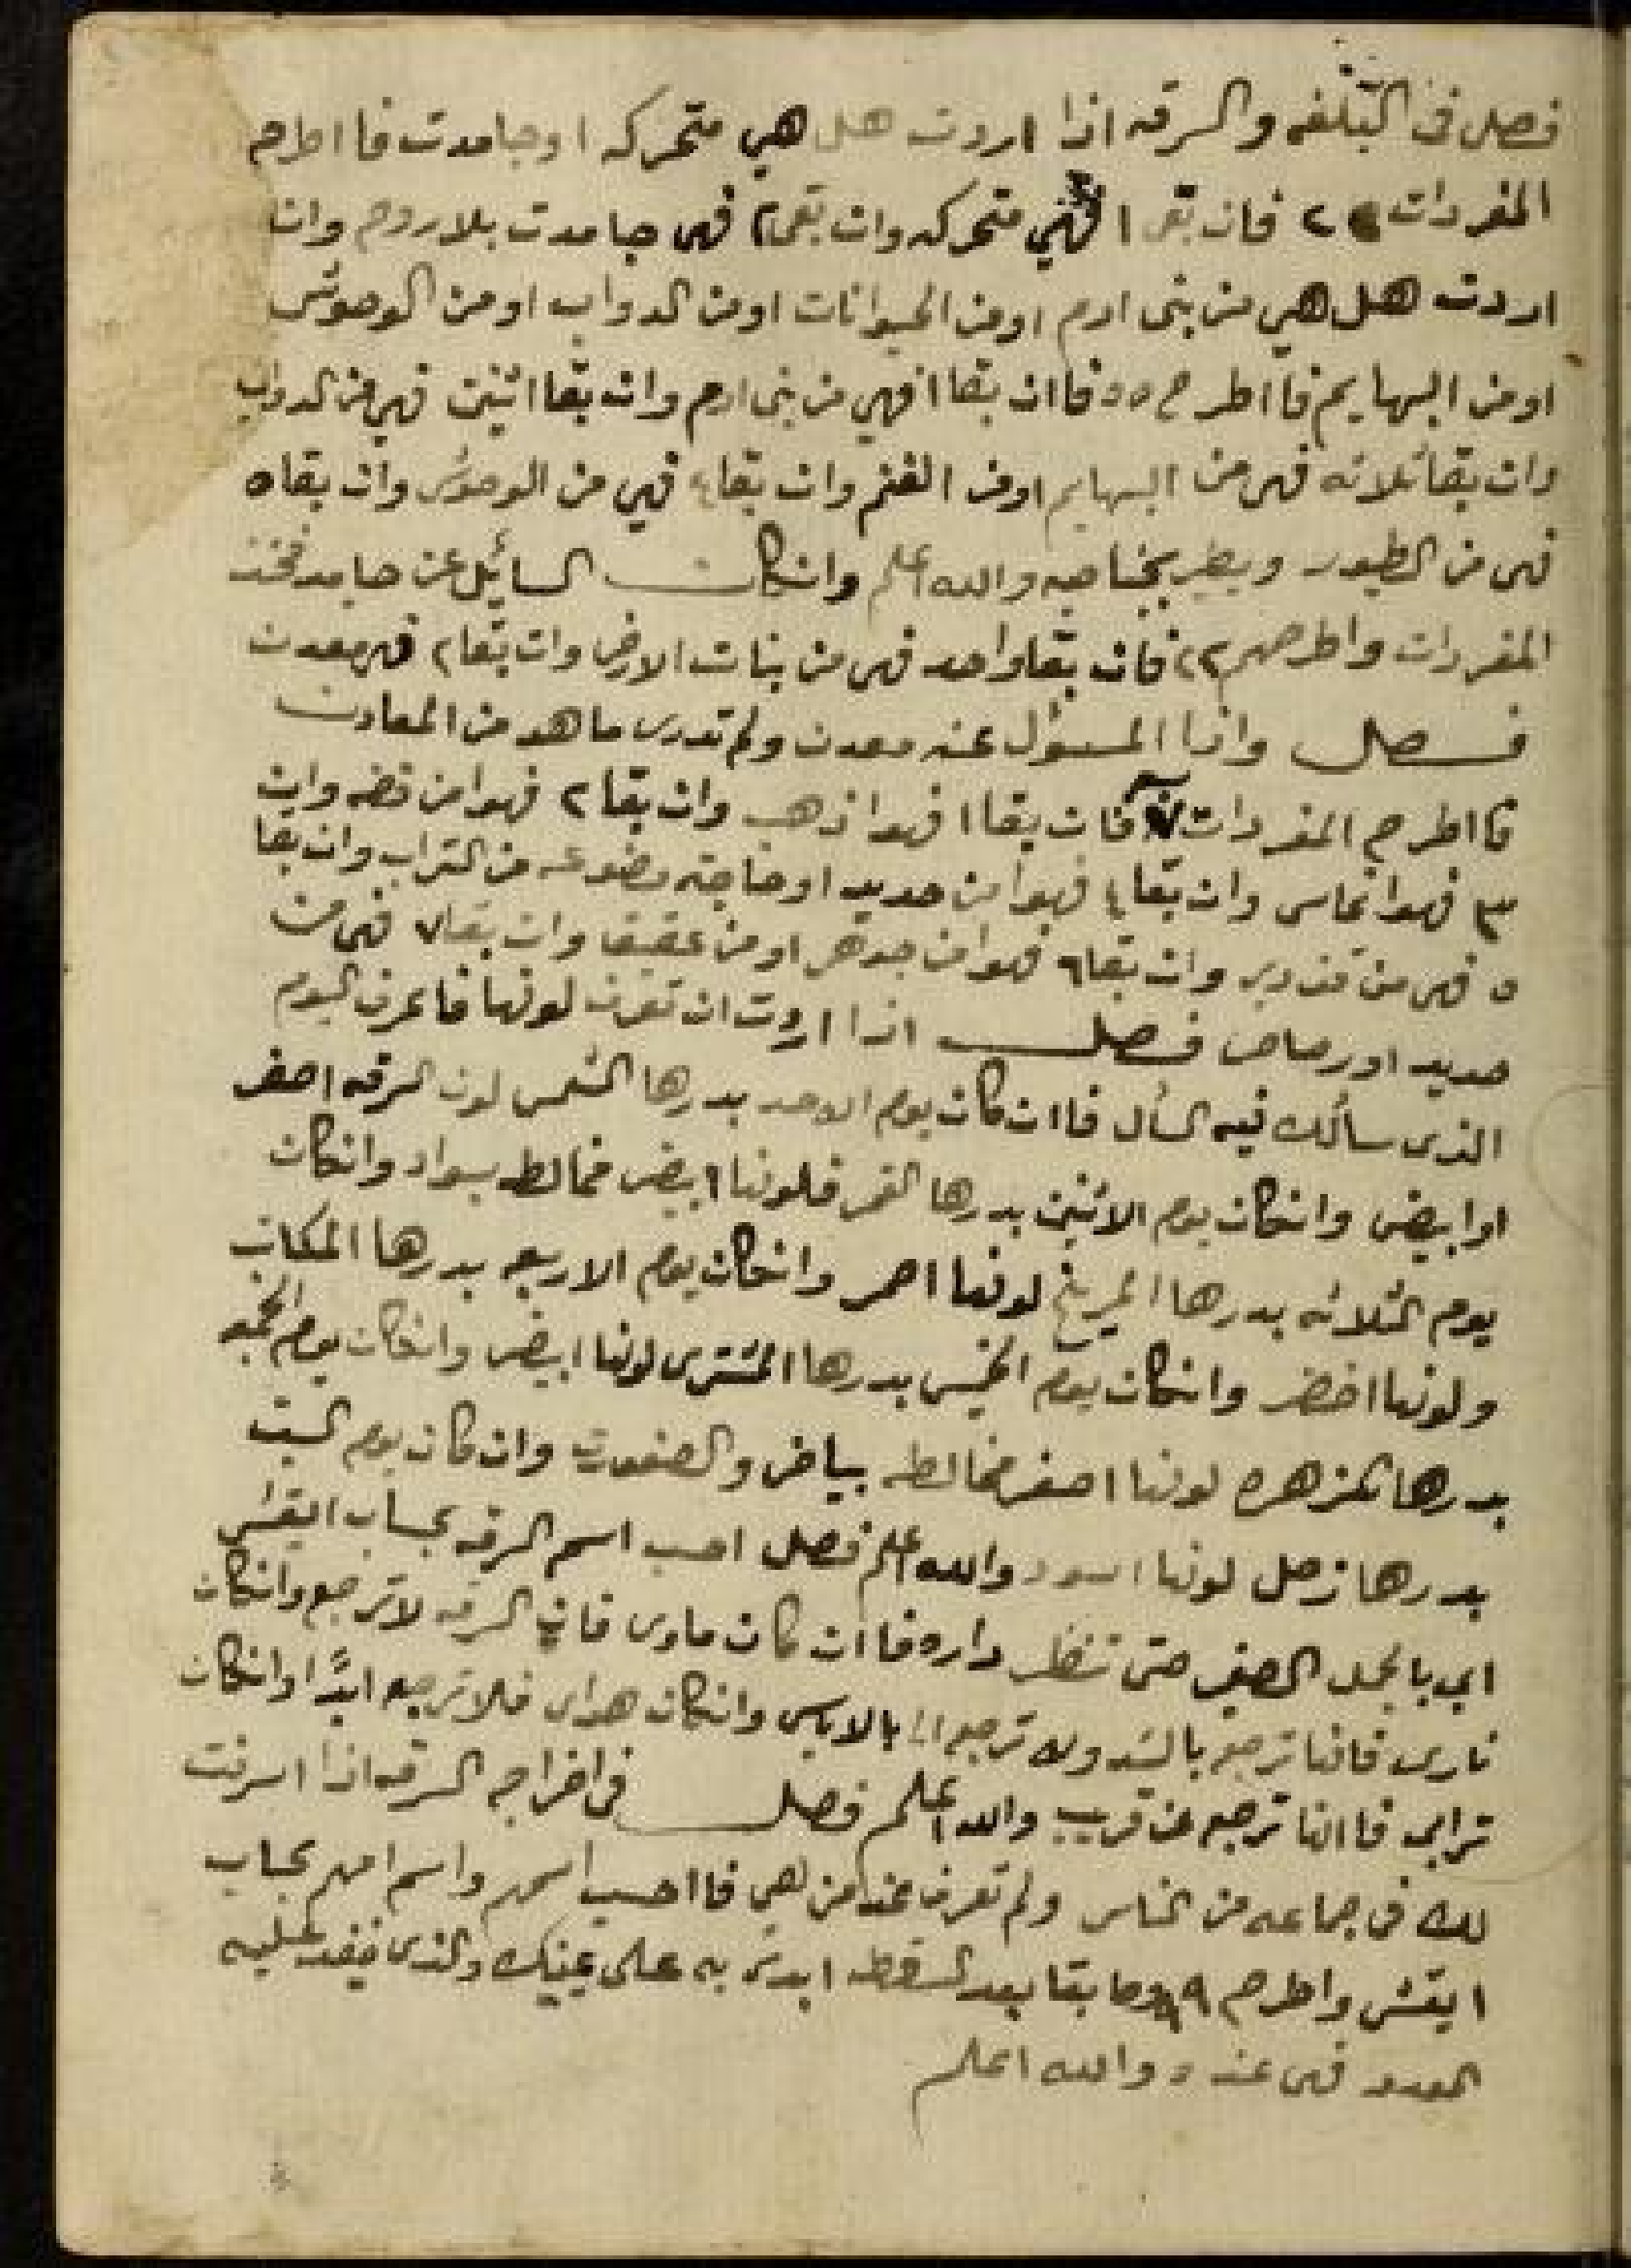 فصل فى التلفه والسرقه اذا اردت هل هي متحركه او جامدت فا اطرح
المفردات ٢ فان بقى ١ فهي متحركه وان بقى ٢ فهى جامدت بلا روح وان
اردت هل هي من بنى ادم او من الحيوانات او من الدواب او من الوحوش
او من البهايم فا اطرح ٥٥ فا ان بقا ١ فهي من بنى ادم وان بقا اثنين فهي من الدواب
وان بقا ثلاثه فهى من البهايم او من الغنم وان بقا ٤ فهي من الوحوش وان بقا ٥
فهى من الطيور ويطير بجناحيه والله اعلم وانكان السائل عن جامد فخذ
المفردات واطرحهم ٢٢ فان بقا واحد فهى من بنات الارض وان بقا ٢ فهى معدن
فصل واذا المسؤل عنه معدن ولم تدرى ما هو من المعادن
فا اطرح المفردات ٧ فان بقا ١ فهوا ذهب وان بقا ٢ فهوا من فضه وان
٣ فهوا نحاس وان بقا ٤ فهوا من حديد او حاجة مضوعه من التراب وان بقا
٥ فهى من وان بقا ٦ فهوا من جوهر او من عقيقا وان بقا ٧ فهى من
حديد او رصاص فصل اذا اردت ان تعرف لونها فا عرف اليوم
الذى سألك فيه السأل فا ان كان يوم الاحد بدرها الشمس لون السرقه اصفر
او ابيض وانكان يوم الاثنين بدرها القمر فلونها ابيض مخالط بسواد وانكان
يوم الثلاثه بدرها المريخ لونها احمر وانكان يوم الاربعه بدرها المكاتب
ولونها اخضر وانكان يوم الخميس بدرها المشترى لونها ابيض وانكان يوم الجمعه
بدرها الزهره لونها اصفر مخالطه بياض والصفورت وان كان يوم السبت
بدرها زحل لونها اسود والله اعلم فصل احسب اسم السرقه بحساب ايقش
اي بالجمل الصغير حتى تنظر داره فا ان كان ماوى فان السرقه لا ترجع وانكان
نارى فانها ترجع بالشده ولا ترجع الا بالاياس وانكان هواى فلا ترجع ابدًا وانكان
ترابى فا انها ترجع عن قريب والله اعلم فصل فى اخراج السرقه اذا اسرقت
لك فى جماعه من الناس ولم تعرف عند من هي فا احسب اسمهم واسم امهم بحساب
ايقش واطرح ٩٩ وما بقا بعد السقطه ابدى به على يمينك والذى ينفد عليه
العدد فهى عنده والله اعلم